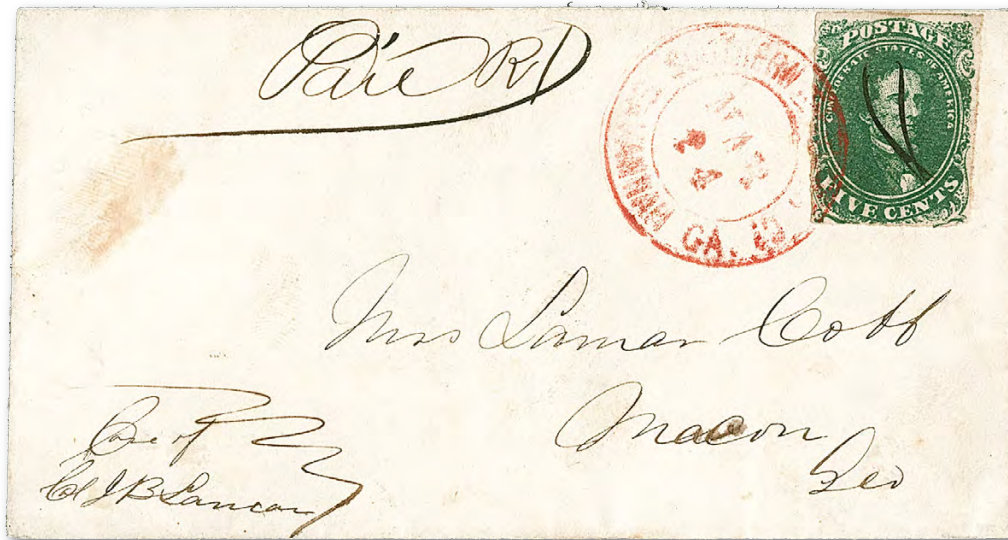 Paid RD
POSTAGE
CONFEDERATE STATES OF AMERICA
FIVE CENTS
SAVANNAH GA.
24
Mrs Lamar Cobb
Macon
Geo
Care of
Col J B Lamar